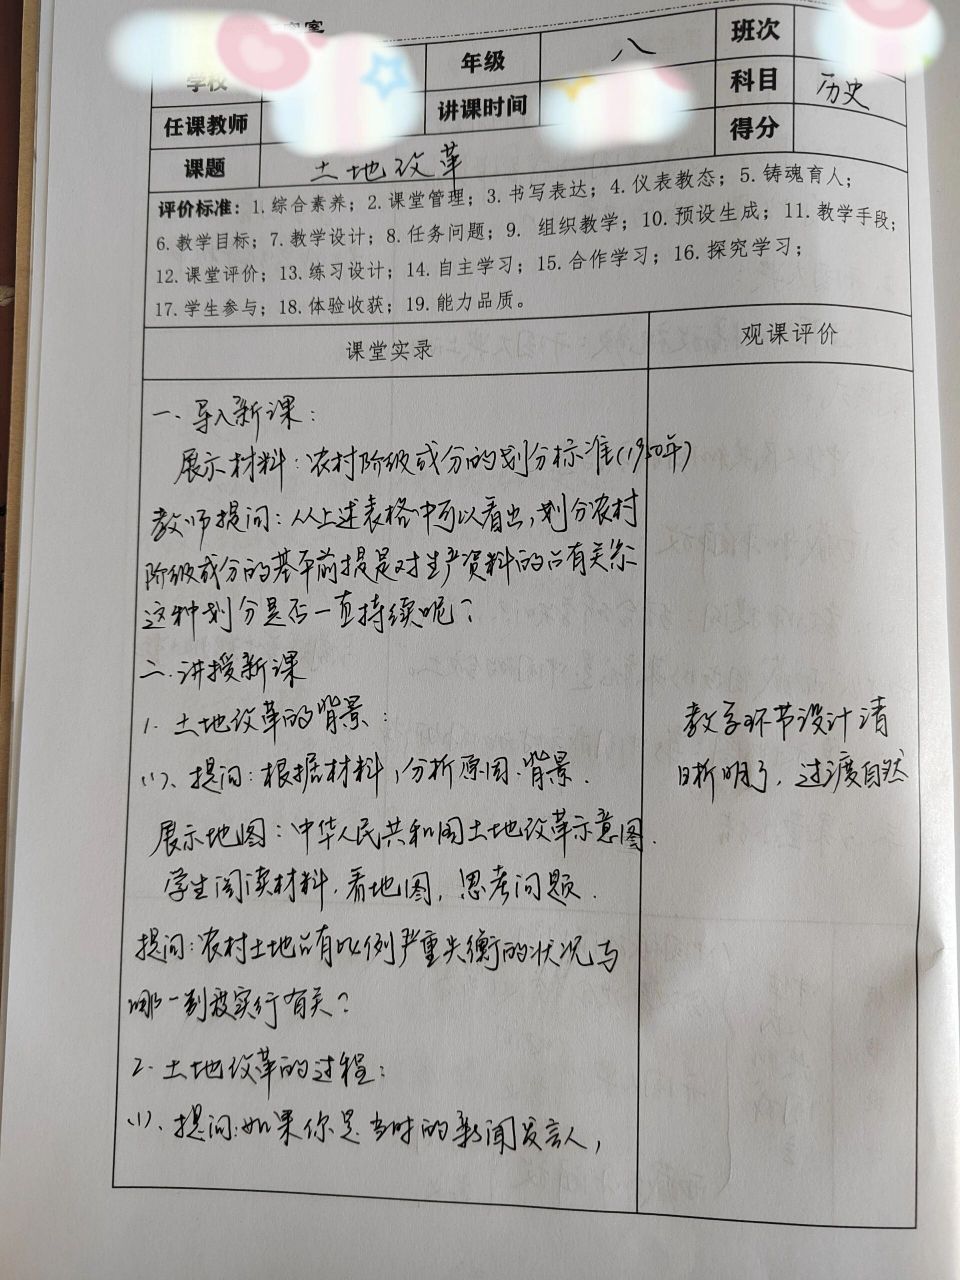 学校
年级 八 班次
任课教师 讲课时间 科目 历史
得分
课题 土地改革
评价标准：1.综合素养；2.课堂管理；3.书写表达；4.仪表教态；5.铸魂育人；
6.教学目标；7.教学设计；8.任务问题；9. 组织教学；10.预设生成；11.教学手段；
12.课堂评价；13.练习设计；14.自主学习；15.合作学习；16.探究学习；
17.学生参与；18.体验收获；19.能力品质。
课堂实录 观课评价
一、导入新课：
展示材料：农村阶级成分的划分标准(1950年)
教师提问：从上述表格中可以看出，划分农村
阶级成分的基本前提是对生产资料的占有关系
这种划分是否一直持续呢？
二、讲授新课
1.土地改革的背景：
(1)、提问：根据材料，分析原因、背景.
展示地图：中华人民共和国土地改革示意图.
学生阅读材料，看地图，思考问题.
提问：农村土地占有比例严重失衡的状况与
哪一制度实行有关？
2.土地改革的过程：
(1)、提问：如果你是当时的新闻发言人，
教学环节设计清
晰明了，过渡自然